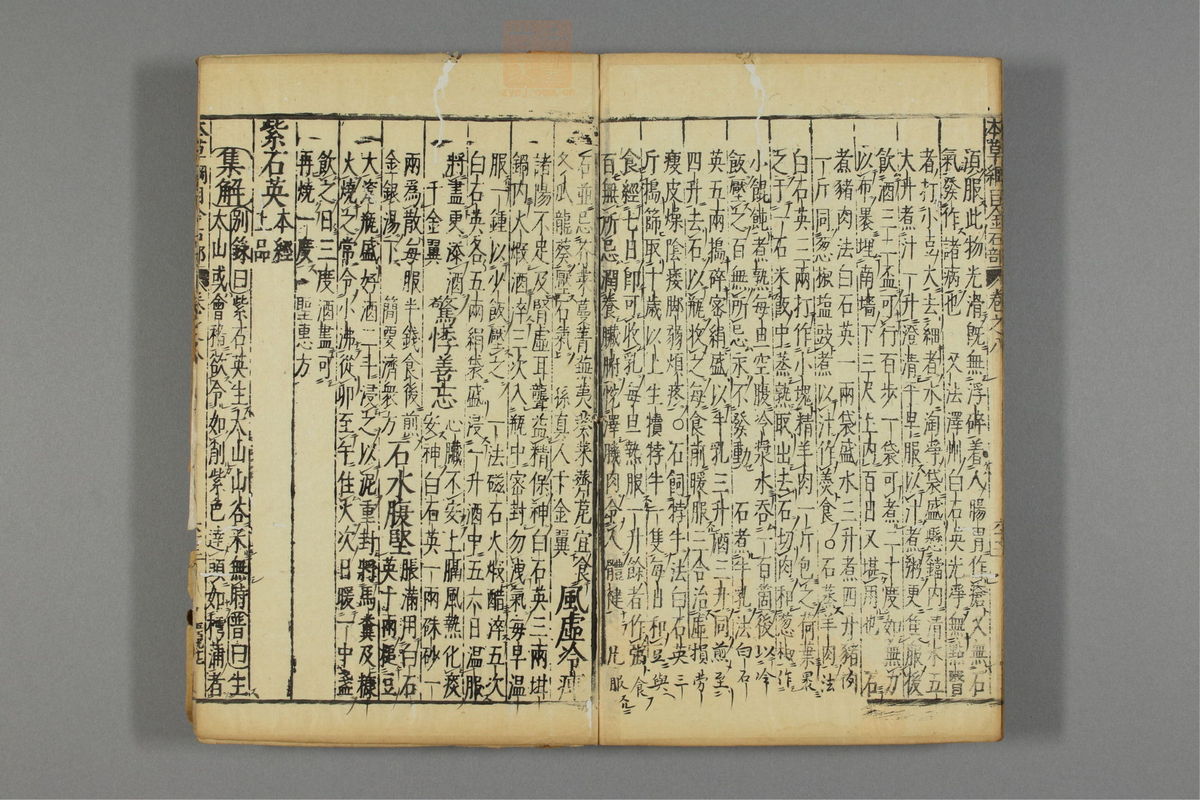 須服此物光滑既無浮碎着人腸胃作瘡又無石
氣發作諸病也 又法澤州白石英光淨無點翳者
者打小豆大去細者水淘淨袋盛懸鐺內清水五
大升煮汁一升澄清平早服以汁煮粥更佳服後
飲酒三二盃可行百步一袋可煮二十度如無力
以布裹埋南墻下三尺土內百日又堪用也 石
煮豬肉法白石英一兩袋盛水三升煮四升豬肉
一斤同葱椒塩豉煮以汁作羹食○石蒸羊肉法
白石英三兩打作小塊精羊肉一斤包之荷葉裹
之于一石米飯中蒸熟取出去石切肉和葱椒作
小餛飩煮熟每旦空腹冷漿水吞一百箇後以冷
飯壓之百無所忌永不發動 石煮牛乳法白石
英五兩搗碎密絹盛以牛乳三升酒三升同煎至
四升去石以瓶收之每食前暖服二合治虛損勞
瘦皮燥陰痿脚弱煩疼○石飼牸牛法白石英三
斤搗篩取十歲以上生犢牸牛一隻每日和豆與
食經七日即可收乳每旦熱服一升餘者作粥食
百無所忌潤養臟腑悅澤肌肉令人體健 凡服
石並忌芥菜蔓菁蕪荑葵菜薺苨宜食
冬瓜龍葵壓石氣 孫真人千金翼 風虛冷痺
諸陽不足及腎虛耳聾益精保神白石英三兩坩
鍋內火煅酒淬三次入瓶中密封勿洩氣毎早溫
服一鍾以少飯壓之 一法磁石火煅醋淬五次
白石英各五兩絹袋盛浸一升酒中五六日溫服
將盡更添酒 千金翼 驚悸善忘 心臟不安上膈風熱化痰 安神白石英一兩硃砂一
兩為散每服半錢食後煎
金銀湯下 簡要濟衆方 石水腹堅 脹滿用白石 英十兩搥豆
大瓷瓶盛好酒二斗浸之以泥重封將馬糞及糠
火燒之常令小沸從卯至午住火次日暖一中盞
飲之日三度酒盡可
再燒一度 聖惠方
紫石英 本經上品
集解 別錄曰紫石英生太山山谷采無時普曰生
太山或會稽欲令如削紫色達頭如樗蒲者